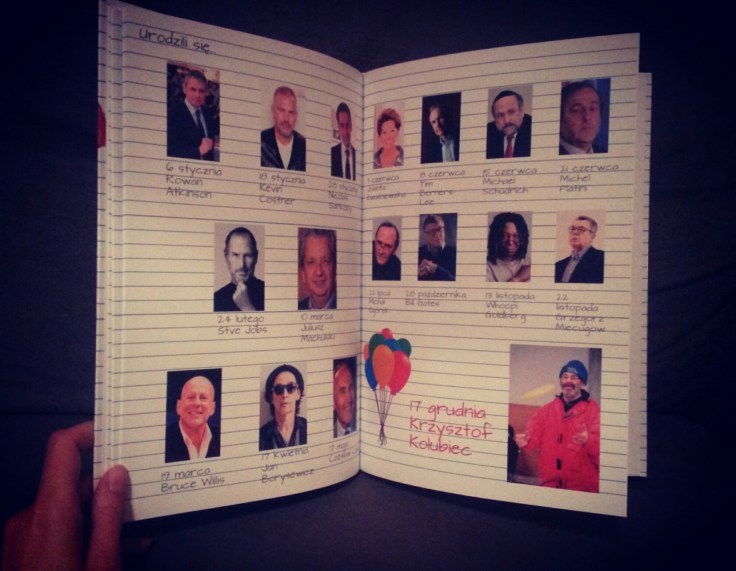 urodzili się
6 stycznia
Rowan
Atkinson
18 stycznia
Kevin
Costner
28 stycznia
Nicolas
Sarkozy
24 lutego
Stve Jobs
10 marca
Juliusz
Machulski
19 marca
Bruce Wilis
17 kwietnia
Jan
Borysewicz
17 maja
1 czerwca
8 czerwca
Tim
Berners-
Lee
15 czerwca
Michael
Schudrich
21 czerwca
Michel
Platini
22 lipca
Michał
Ogórek
28 października
Bill Gates
13 listopada
Whoopi
Goldberg
22
listopada
Grzegorz
Miecugow
17 grudnia
Krzysztof
Kolubiec